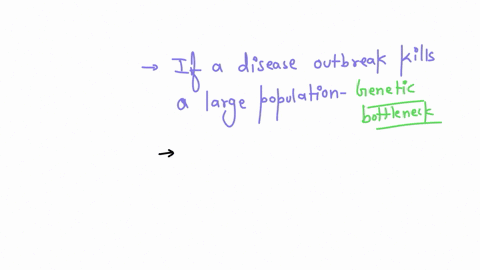 → If a disease outbreak kills
a large population- Genetic
bottleneck
→